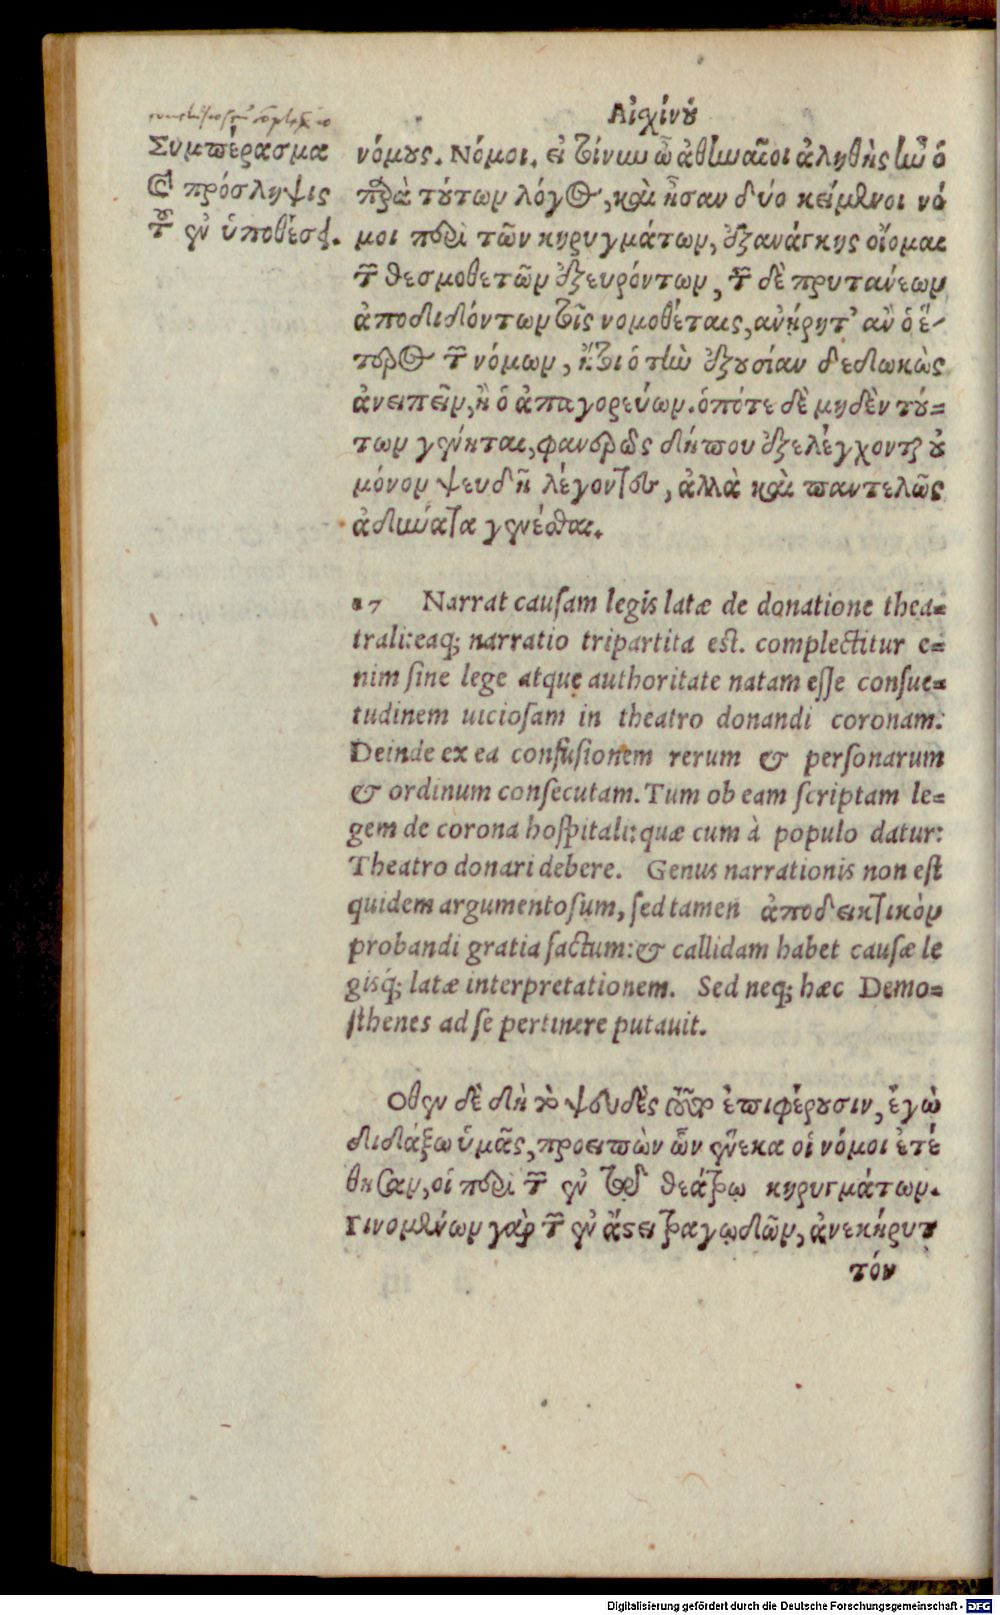 Αἰσχίνου
Συμπέρασμα
καὶ πρόσληψις
τοῦ ἐν ὑποθέσει.
νόμους. Νόμοι. εἰ τοίνυν ὦ ἀθηναῖοι ἀληθὴς ἦν ὁ
παρὰ τούτων λόγος, καὶ ἦσαν δύο κείμενοι νό
μοι περὶ τῶν κηρυγμάτων, ἐξανάγκης οἶομαι
τῶν θεσμοθετῶν ἐξευρόντων, τῶν δὲ πρυτανέων
ἀποδιδόντων τοῖς νομοθέταις, ἀνῄρητ' ἂν ὁ ἕ-
τερος τῶν νόμων, ἤτοι ὁ τὴν ἐξουσίαν δεδωκὼς
ἀνειπεῖν, ἢ ὁ ἀπαγορεύων. ὁπότε δὲ μηδὲν τού=
των γένηται, φανερῶς δήπου ἐξελέγχονται οὐ
μόνον ψευδῆ λέγοντες, ἀλλὰ καὶ παντελῶς
ἀδύνατα γενέσθαι.
17 Narrat cauſam legis latæ de donatione thea=
trali: eaq; narratio tripartita eſt. complectitur e=
nim ſine lege atque authoritate natam eſſe conſue=
tudinem uicioſam in theatro donandi coronam:
Deinde ex ea confuſionem rerum & perſonarum
& ordinum conſecutam. Tum ob eam ſcriptam le=
gem de corona hoſpitali: quæ cum à populo datur:
Theatro donari debere. Genus narrationis non eſt
quidem argumentoſum, ſed tamen ἀποδεικτικὸν
probandi gratia factum: & callidam habet cauſæ le
gisq́; latæ interpretationem. Sed neq; hæc Demo=
ſthenes ad ſe pertinere putauit.
Οθεν δὲ δὴ τὸ ψευδὲς τοῦτο ἐπιφέρουσιν, ἐγὼ
διδάξω ὑμᾶς, προειπὼν ὧν ἕνεκα οἱ νόμοι ἐτέ
θησαν, οἱ περὶ τῶν ἐν τῷ θεάτρῳ κηρυγμάτων.
Γινομένων γὰρ τῶν ἐν ἄστει τραγῳδῶν, ἀνεκήρυτ
τόν